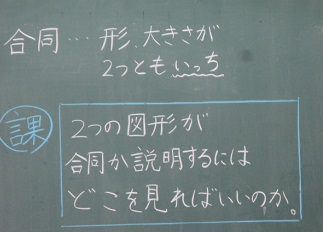 合同… 形、大きさが
2つともいっち
課
2つの図形が
合同か説明するには
どこを見ればいいのか。